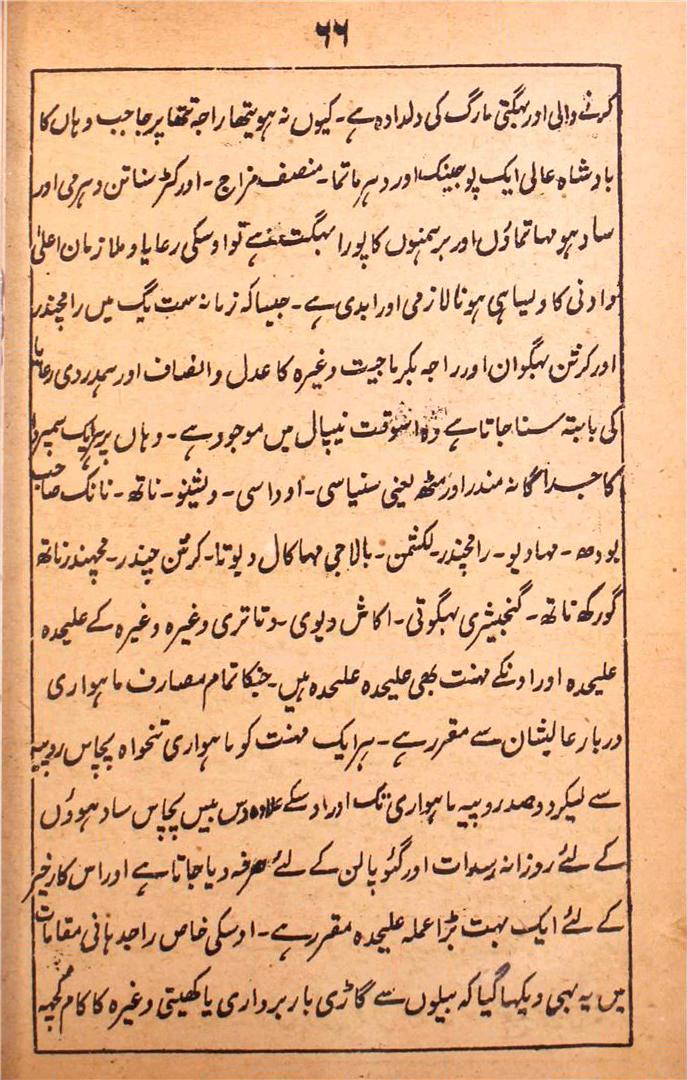 ۶۶
کرنے والی اور بہگتی مارگ کی دلدادہ ہے۔ کیوں نہ ہو یتھا راجہ تتھا پرجا جب وہاں کا
بادشاہ عالی ایک پوجینک اور دہرماتما۔ منصف مزاج۔ اور کٹر سناتن دہرمی اور
سادہو مہاتماؤں اور برہمنوں کا پورا بہگت ہے تو اوسکی رعایا و ملازمان اعلیٰ
و ادنی کا ویسا ہی ہونا لازمی اور ابدی ہے۔ جیسا کہ زمانہ ست یگ میں رامچندر
اور کرشن بہگوان اور راجہ بکرماجیت وغیرہ کا عدل و انصاف اور ہمدردی رعایا
کی بابتہ سنا جاتا ہے وہ اسوقت نیپال میں موجود ہے۔ وہاں پر ہرایک سمپردا
کا جداگانہ مندر اور مٹھ یعنی سنیاسی۔ اوداسی۔ ویشنو۔ ناتھ۔ نانک صاحب
بودھ۔ مہادیو۔ رامچندر۔ لکشمن۔ بالاجی مہاکال دیوتا۔ کرشن چندر۔ مچھندرناتھ
گورکھ ناتھ۔ گنجیشری بہگوتی۔ اکاش دیوی۔ دتاتری وغیرہ وغیرہ کے علیحدہ
علیحدہ اور اونکے مہنت بھی علیحدہ علیحدہ ہیں۔ جنکا تمام مصارف ماہواری
دربار عالیشان سے مقرر ہے۔ ہرایک مہنت کو ماہواری تنخواہ پچاس روپیہ
سے لیکر دو صد روپیہ ماہواری تک اور اوسکے علاوہ دس بیس پچاس سادہوؤں
کے لئے روزانہ رسدات اور گئوپالن کے لئے صرفہ دیا جاتا ہے اور اس کارخیر
کے لئے ایک بہت بڑا عملہ علیحدہ مقرر ہے۔ اوسکی خاص راجدہانی مقامات
میں یہ بہی دیکہا گیا کہ بیلوں سے گاڑی باربرداری یا کھیتی وغیرہ کا کام کچہہ